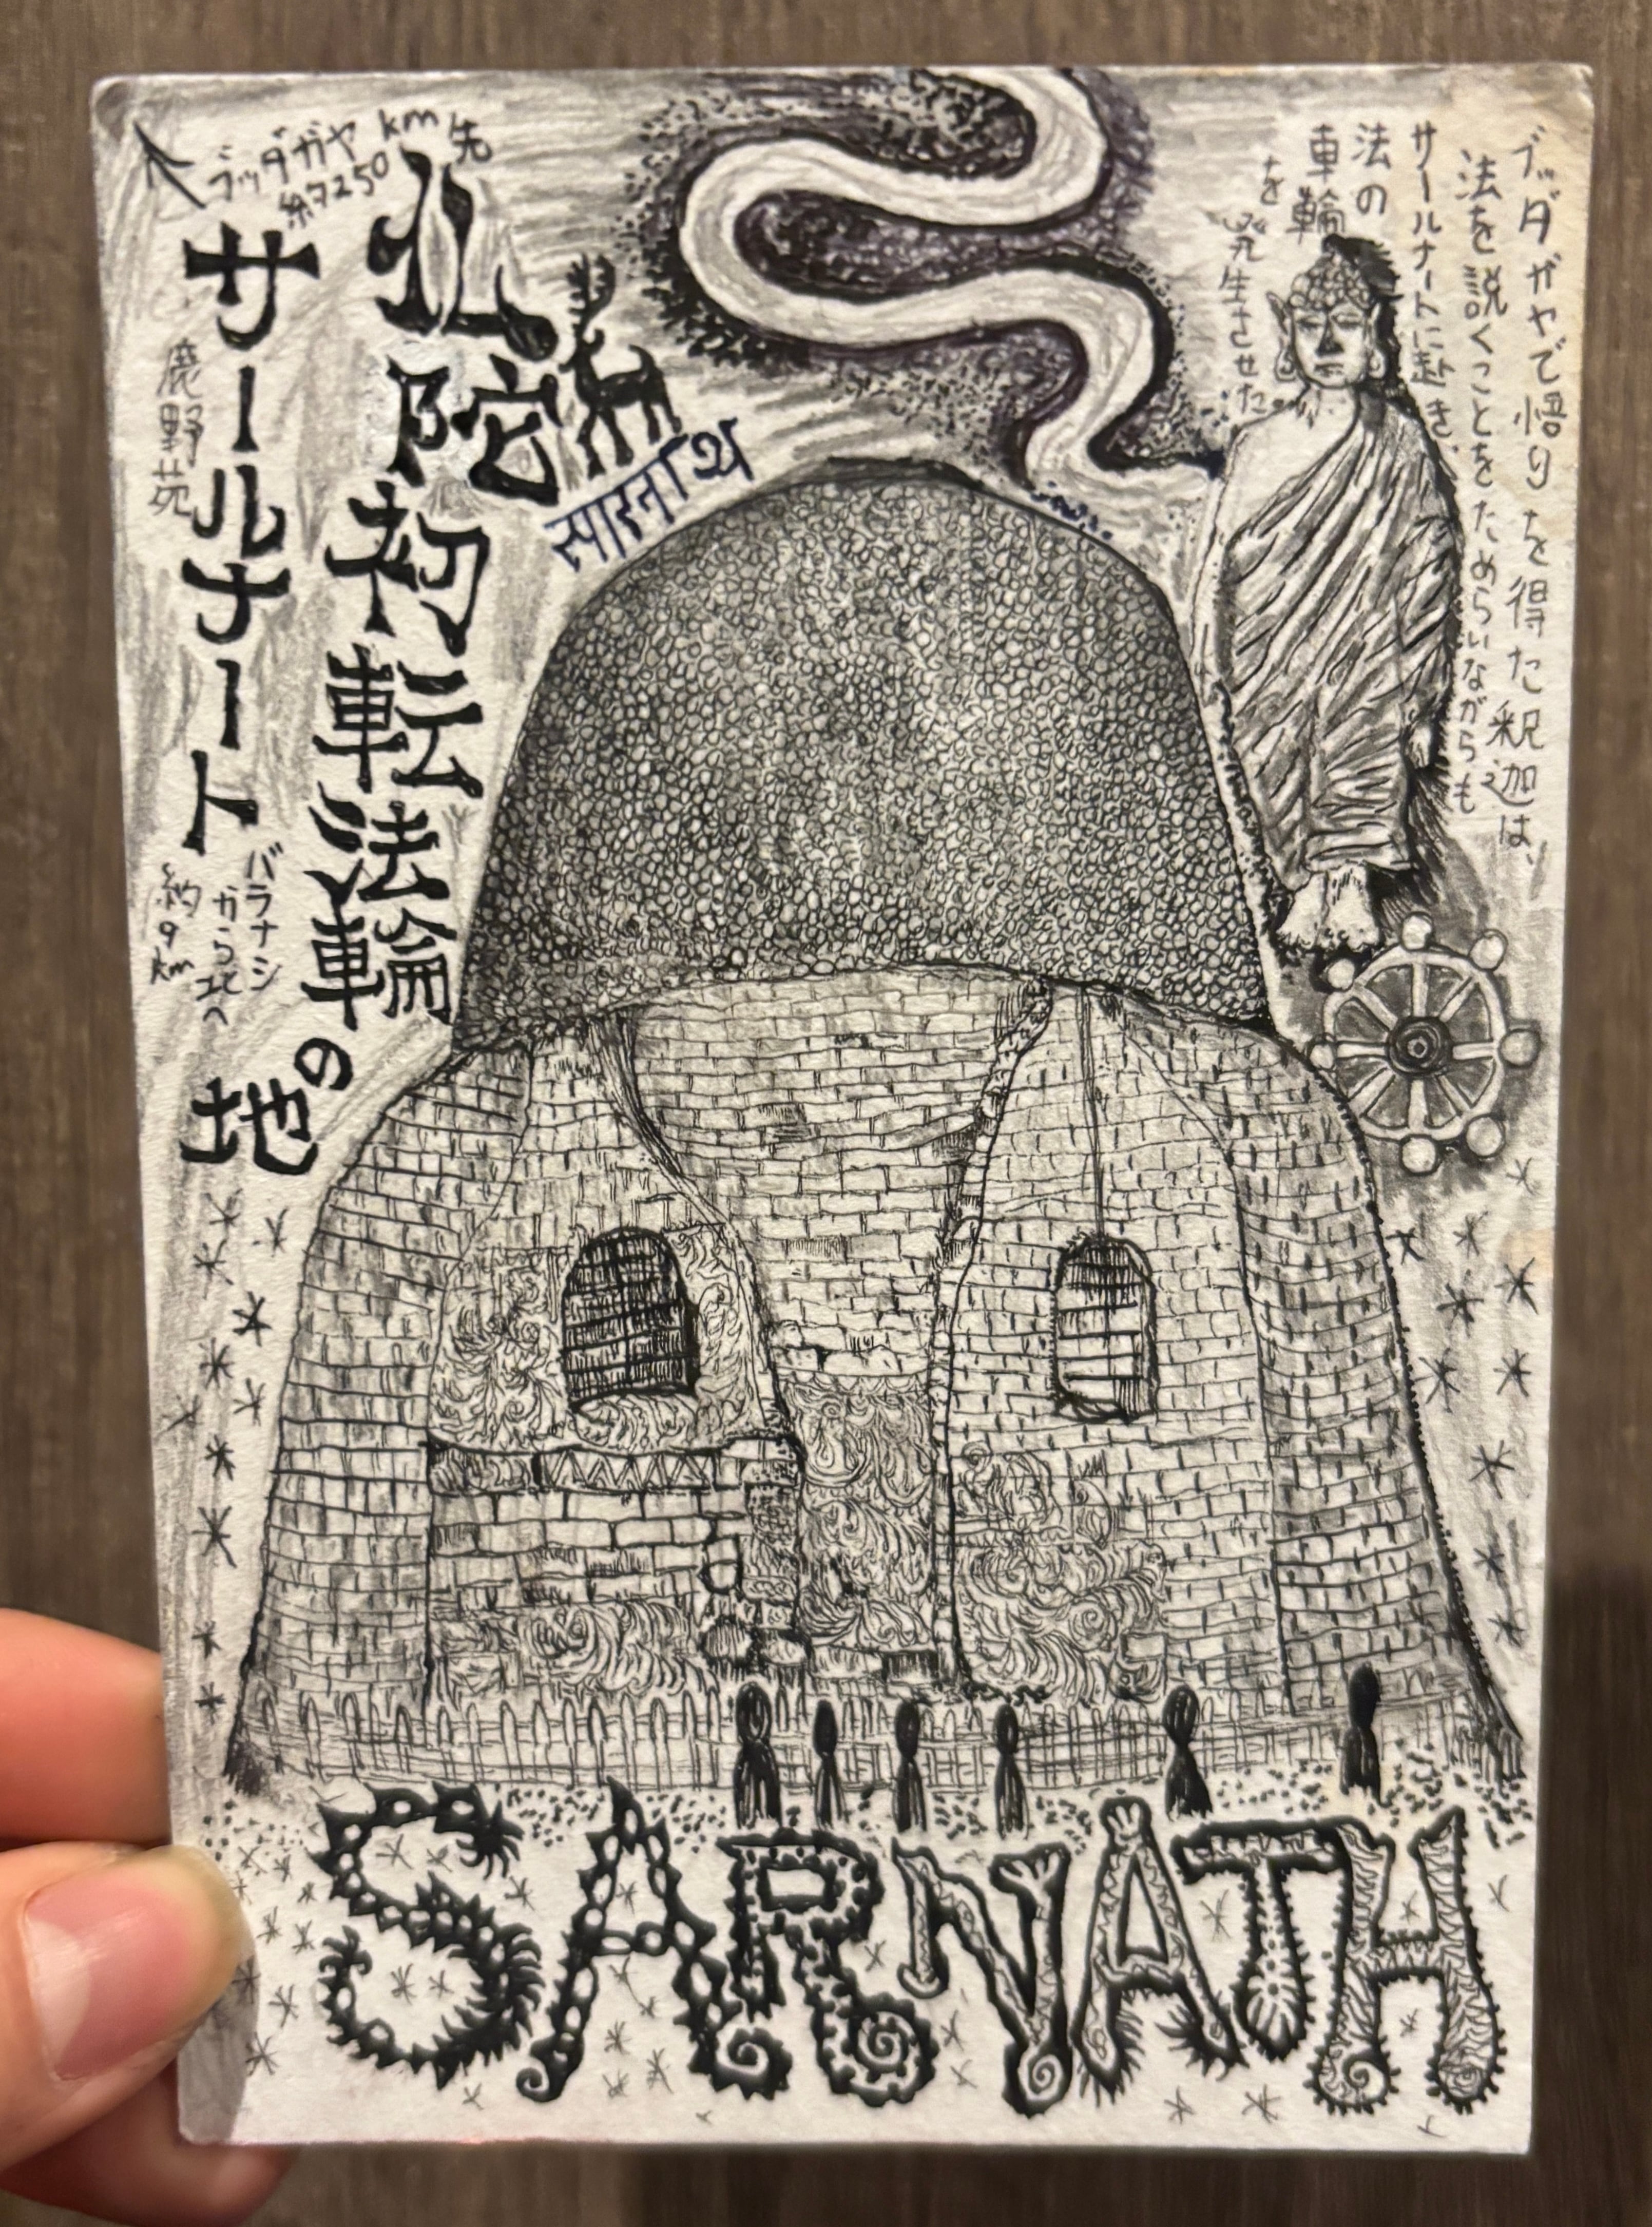 ブッダガヤで悟りを得た釈迦は、
法を説くことをためらいながらも
サールナートに赴き、
法の
車輪
を
発生させた
ブッダガヤ
約250km先
仏陀初転法輪の地
サールナート
鹿野苑
バラナシ
から北へ
約9km
सारनाथ
SARNATH